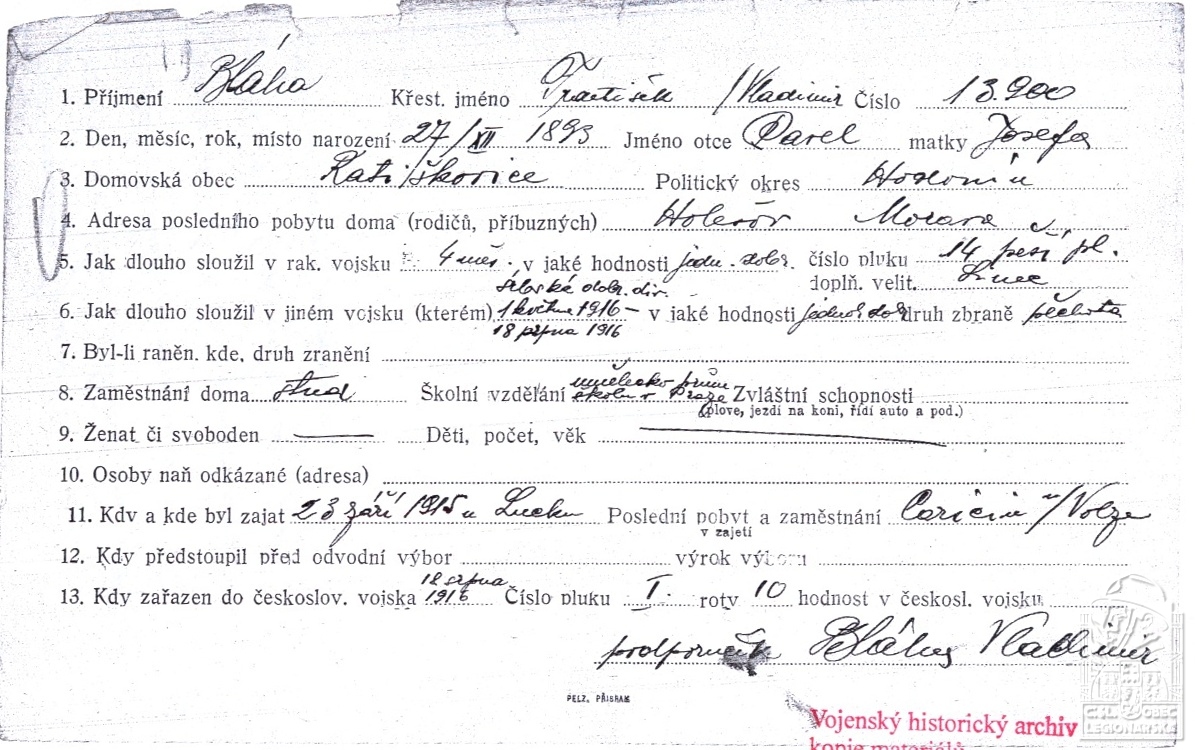 1. Příjmení Bláha Křest. jméno František /Vladimir Číslo 13.900
2. Den, měsíc, rok, místo narození 27/XII 1893 Jméno otce Pavel matky Josefa
3. Domovská obec Ratiškovice Politický okres Hodonín
4. Adresa posledního pobytu doma (rodičů, příbuzných) Morava
5. Jak dlouho sloužil v rak. vojsku 4 měs. v jaké hodnosti jedn. dobr. číslo pluku 14 peší pl.
doplň. velit. Linec
6. Jak dlouho sloužil v jiném vojsku (kterém) Srbská dobr. div. 1 května 1916 – 18 srpna 1916 v jaké hodnosti jednor. dob druh zbraně pěchota
7. Byl-li raněn. kde, druh zranění
8. Zaměstnání doma stud Školní vzdělání umělecko prům školu v Praze Zvláštní schopnosti
(plove, jezdí na koni, řídí auto a pod.)
9. Ženat či svoboden Děti, počet, věk
10. Osoby naň odkázané (adresa)
11. Kdy a kde byl zajat 23 září 1915 u Lucku Poslední pobyt a zaměstnání Caricin n/Volze
v zajetí
12. Kdy předstoupil před odvodní výbor výrok výboru
13. Kdy zařazen do českoslov. vojska 18 srpna 1916 Číslo pluku I. roty 10 hodnost v českosl. vojsku
podporučík Bláha Vladimir
PELZ, PŘÍBRAM
Vojenský historický archiv
kopie materiálů
ČSL. OBEC
LEGIONÁŘSKÁ